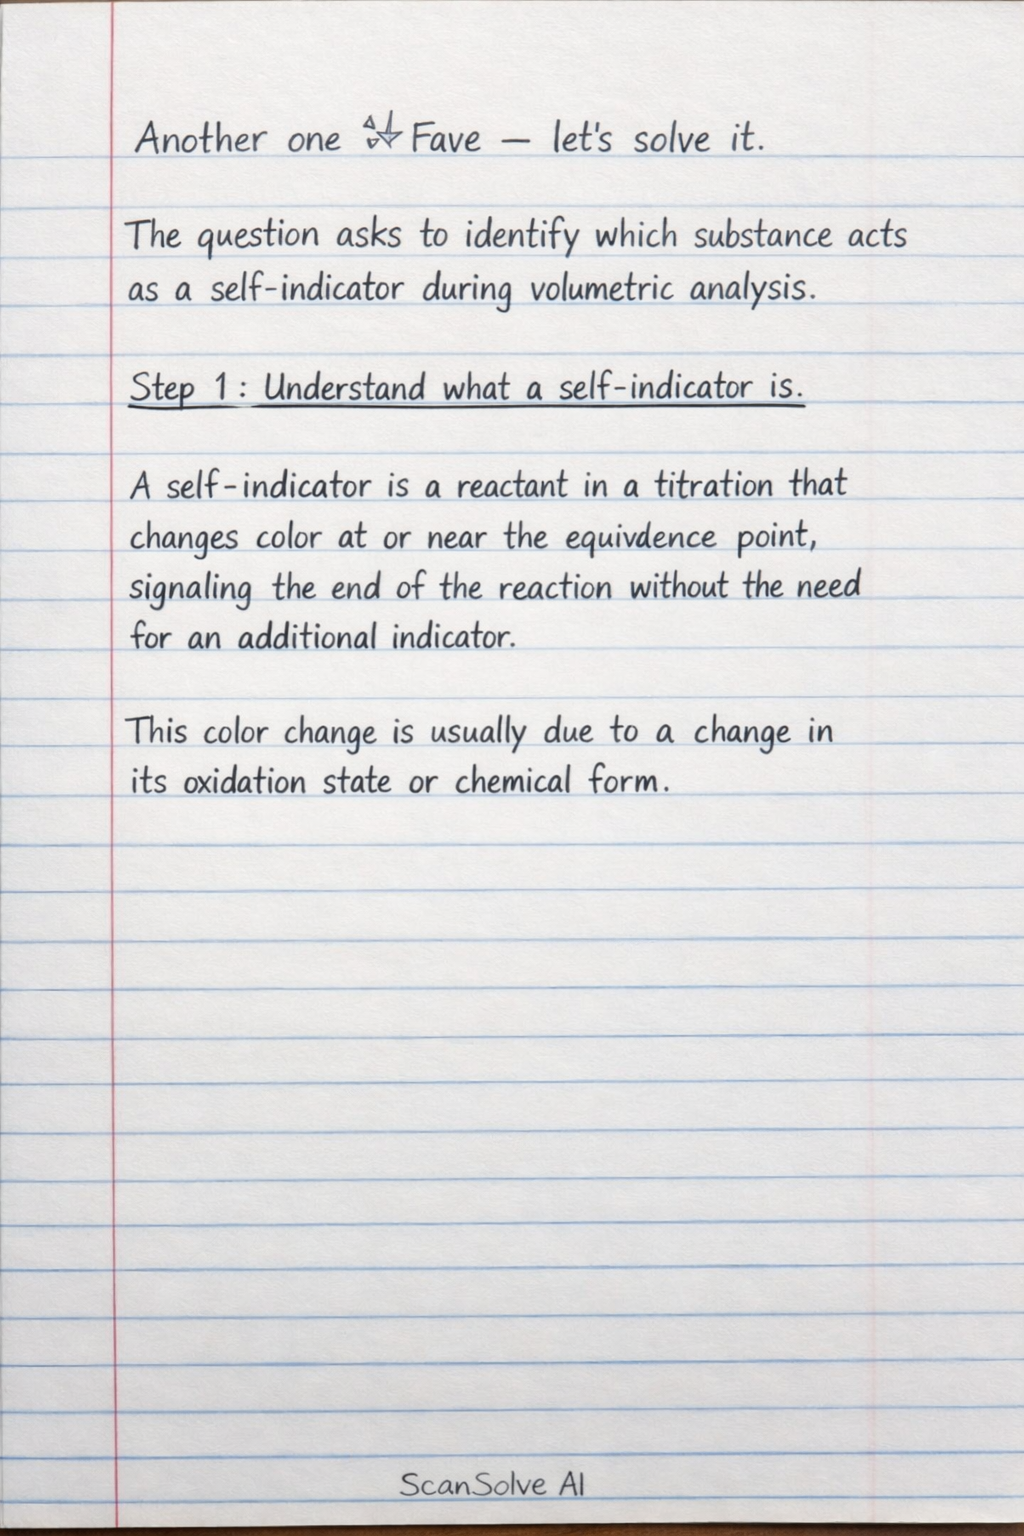 Another one Fave — let's solve it.
The question asks to identify which substance acts
as a self-indicator during volumetric analysis.
Step 1: Understand what a self-indicator is.
A self-indicator is a reactant in a titration that
changes color at or near the equivdence point,
signaling the end of the reaction without the need
for an additional indicator.
This color change is usually due to a change in
its oxidation state or chemical form.
ScanSolve AI